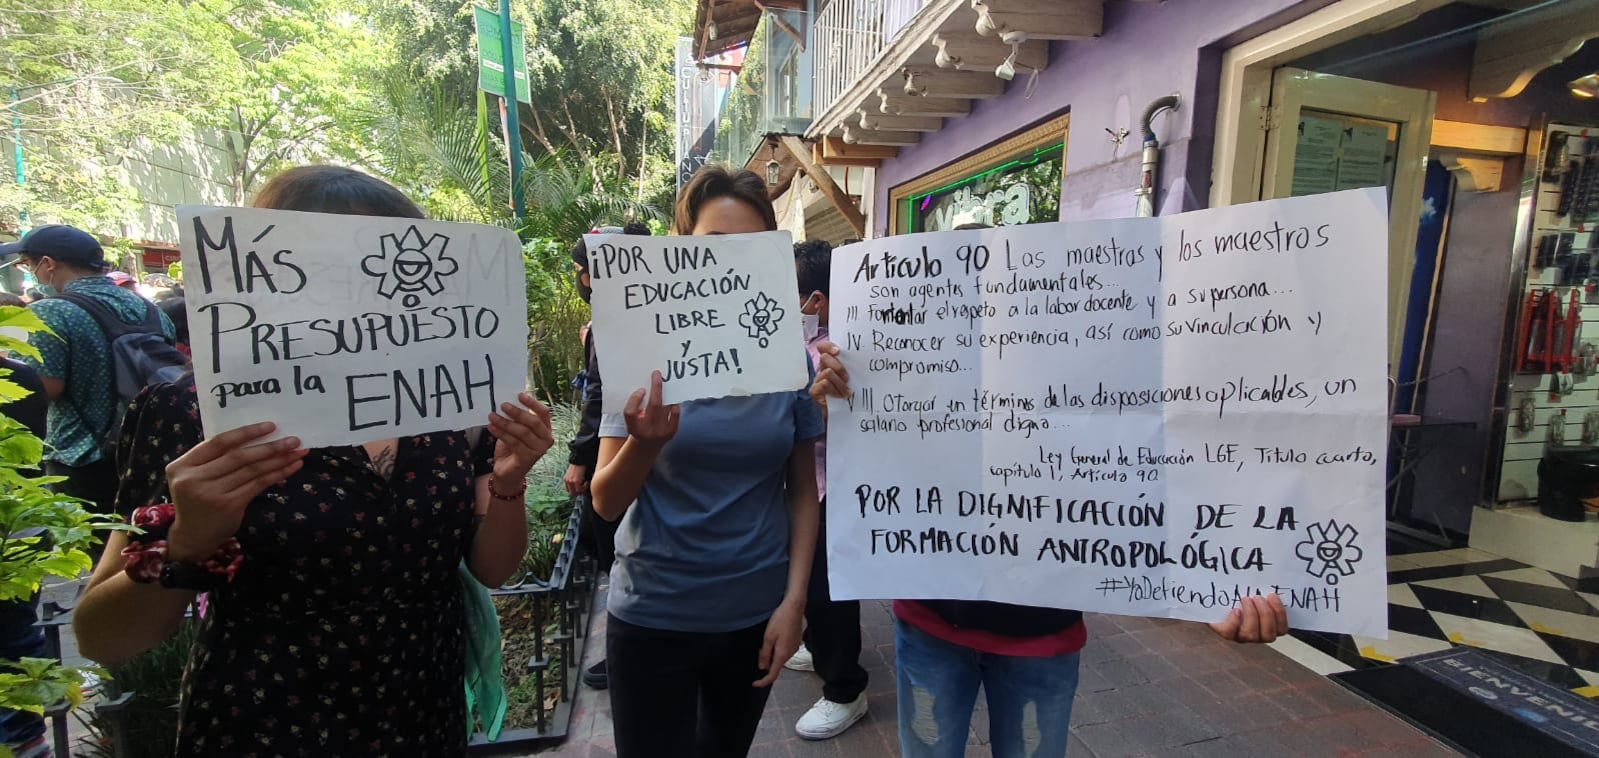 MÁS
PRESUPUESTO
para la ENAH
¡POR UNA
EDUCACIÓN
LIBRE
y
JUSTA!
Artículo 90 Las maestras y los maestros
son agentes fundamentales...
III Fomentar el respeto a la labor docente y a su persona...
IV. Reconocer su experiencia, así como su vinculación y
compromiso...
VIII. Otorgar en términos de las disposiciones aplicables, un
salario profesional digno...
Ley General de Educación LGE, Título cuarto,
capítulo I, Artículo 90
POR LA DIGNIFICACIÓN DE LA
FORMACIÓN ANTROPOLÓGICA
#YoDefiendoALaENAH
vibra
BIENVENID